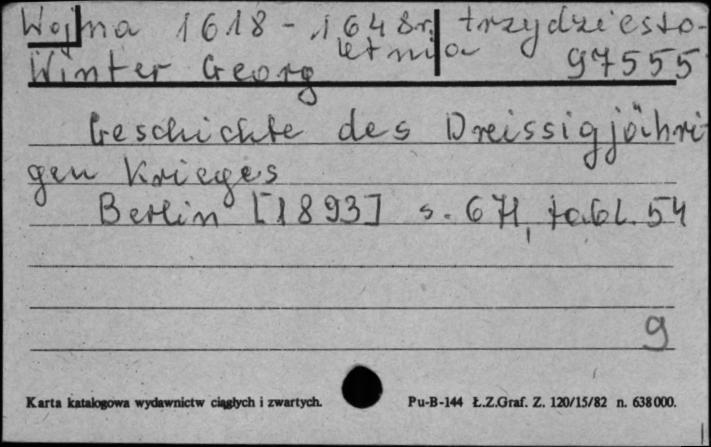 Wojna 1618-1648r. trzydziesto-
letnia
Winter Georg 97555
Geschichte des Dreissigjähri-
gen Krieges
Berlin [1893] s. 671, tabl. 54
9
Karta katalogowa wydawnictw ciągłych i zwartych. Pu-B-144 Ł.Z.Graf. Z. 120/15/82 n. 638000.